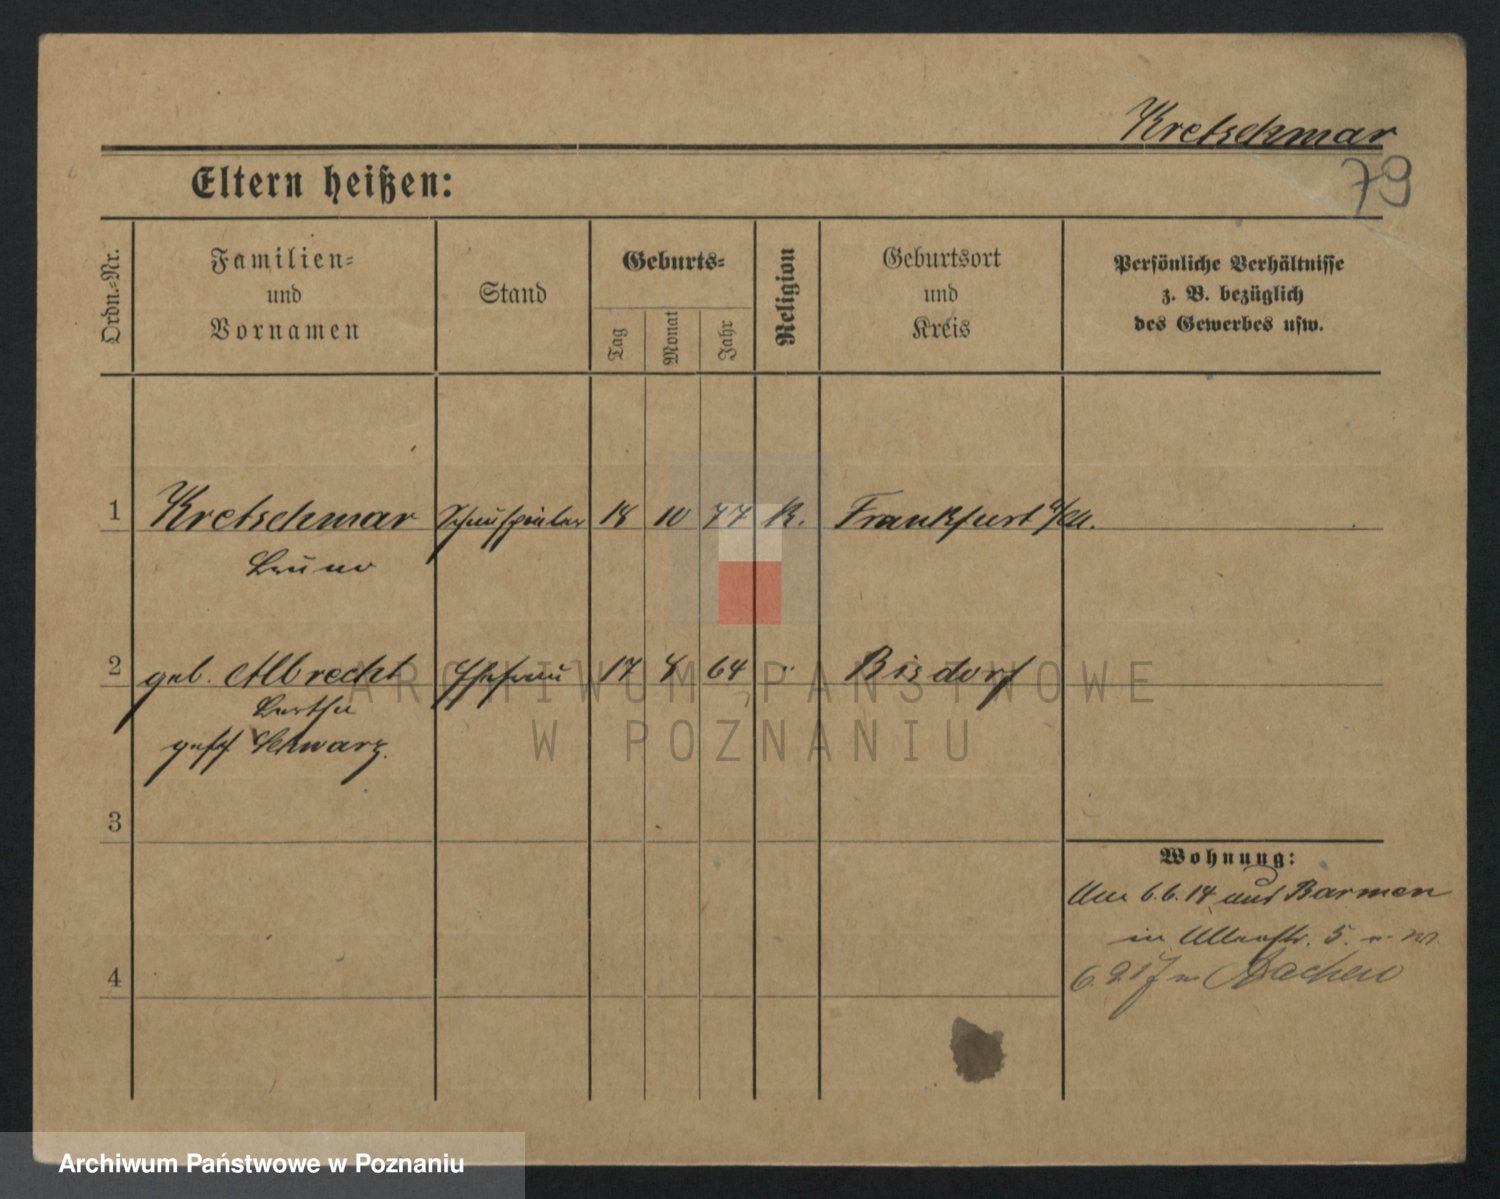 Kretschmar
79
Eltern heißen:
Ordn.-Nr.
Familien-
und
Vornamen
Stand
Geburts-
Tag
Monat
Jahr
Religion
Geburtsort
und
Kreis
Persönliche Verhältnisse
z. B. bezüglich
des Gewerbes usw.
1 Kretschmar Schauspieler 18 10 77 K. Frankfurt a/M.
Bruno
2 geb. Albrecht Ehefrau 17 8 64 " Bisdorf
Bertha
gesch Schwarz.
3
4
Wohnung:
Am 6.6.14 aus Barmen
in 5.
6. Aachen
ARCHIWUM PAŃSTWOWE
W POZNANIU
Archiwum Państwowe w Poznaniu